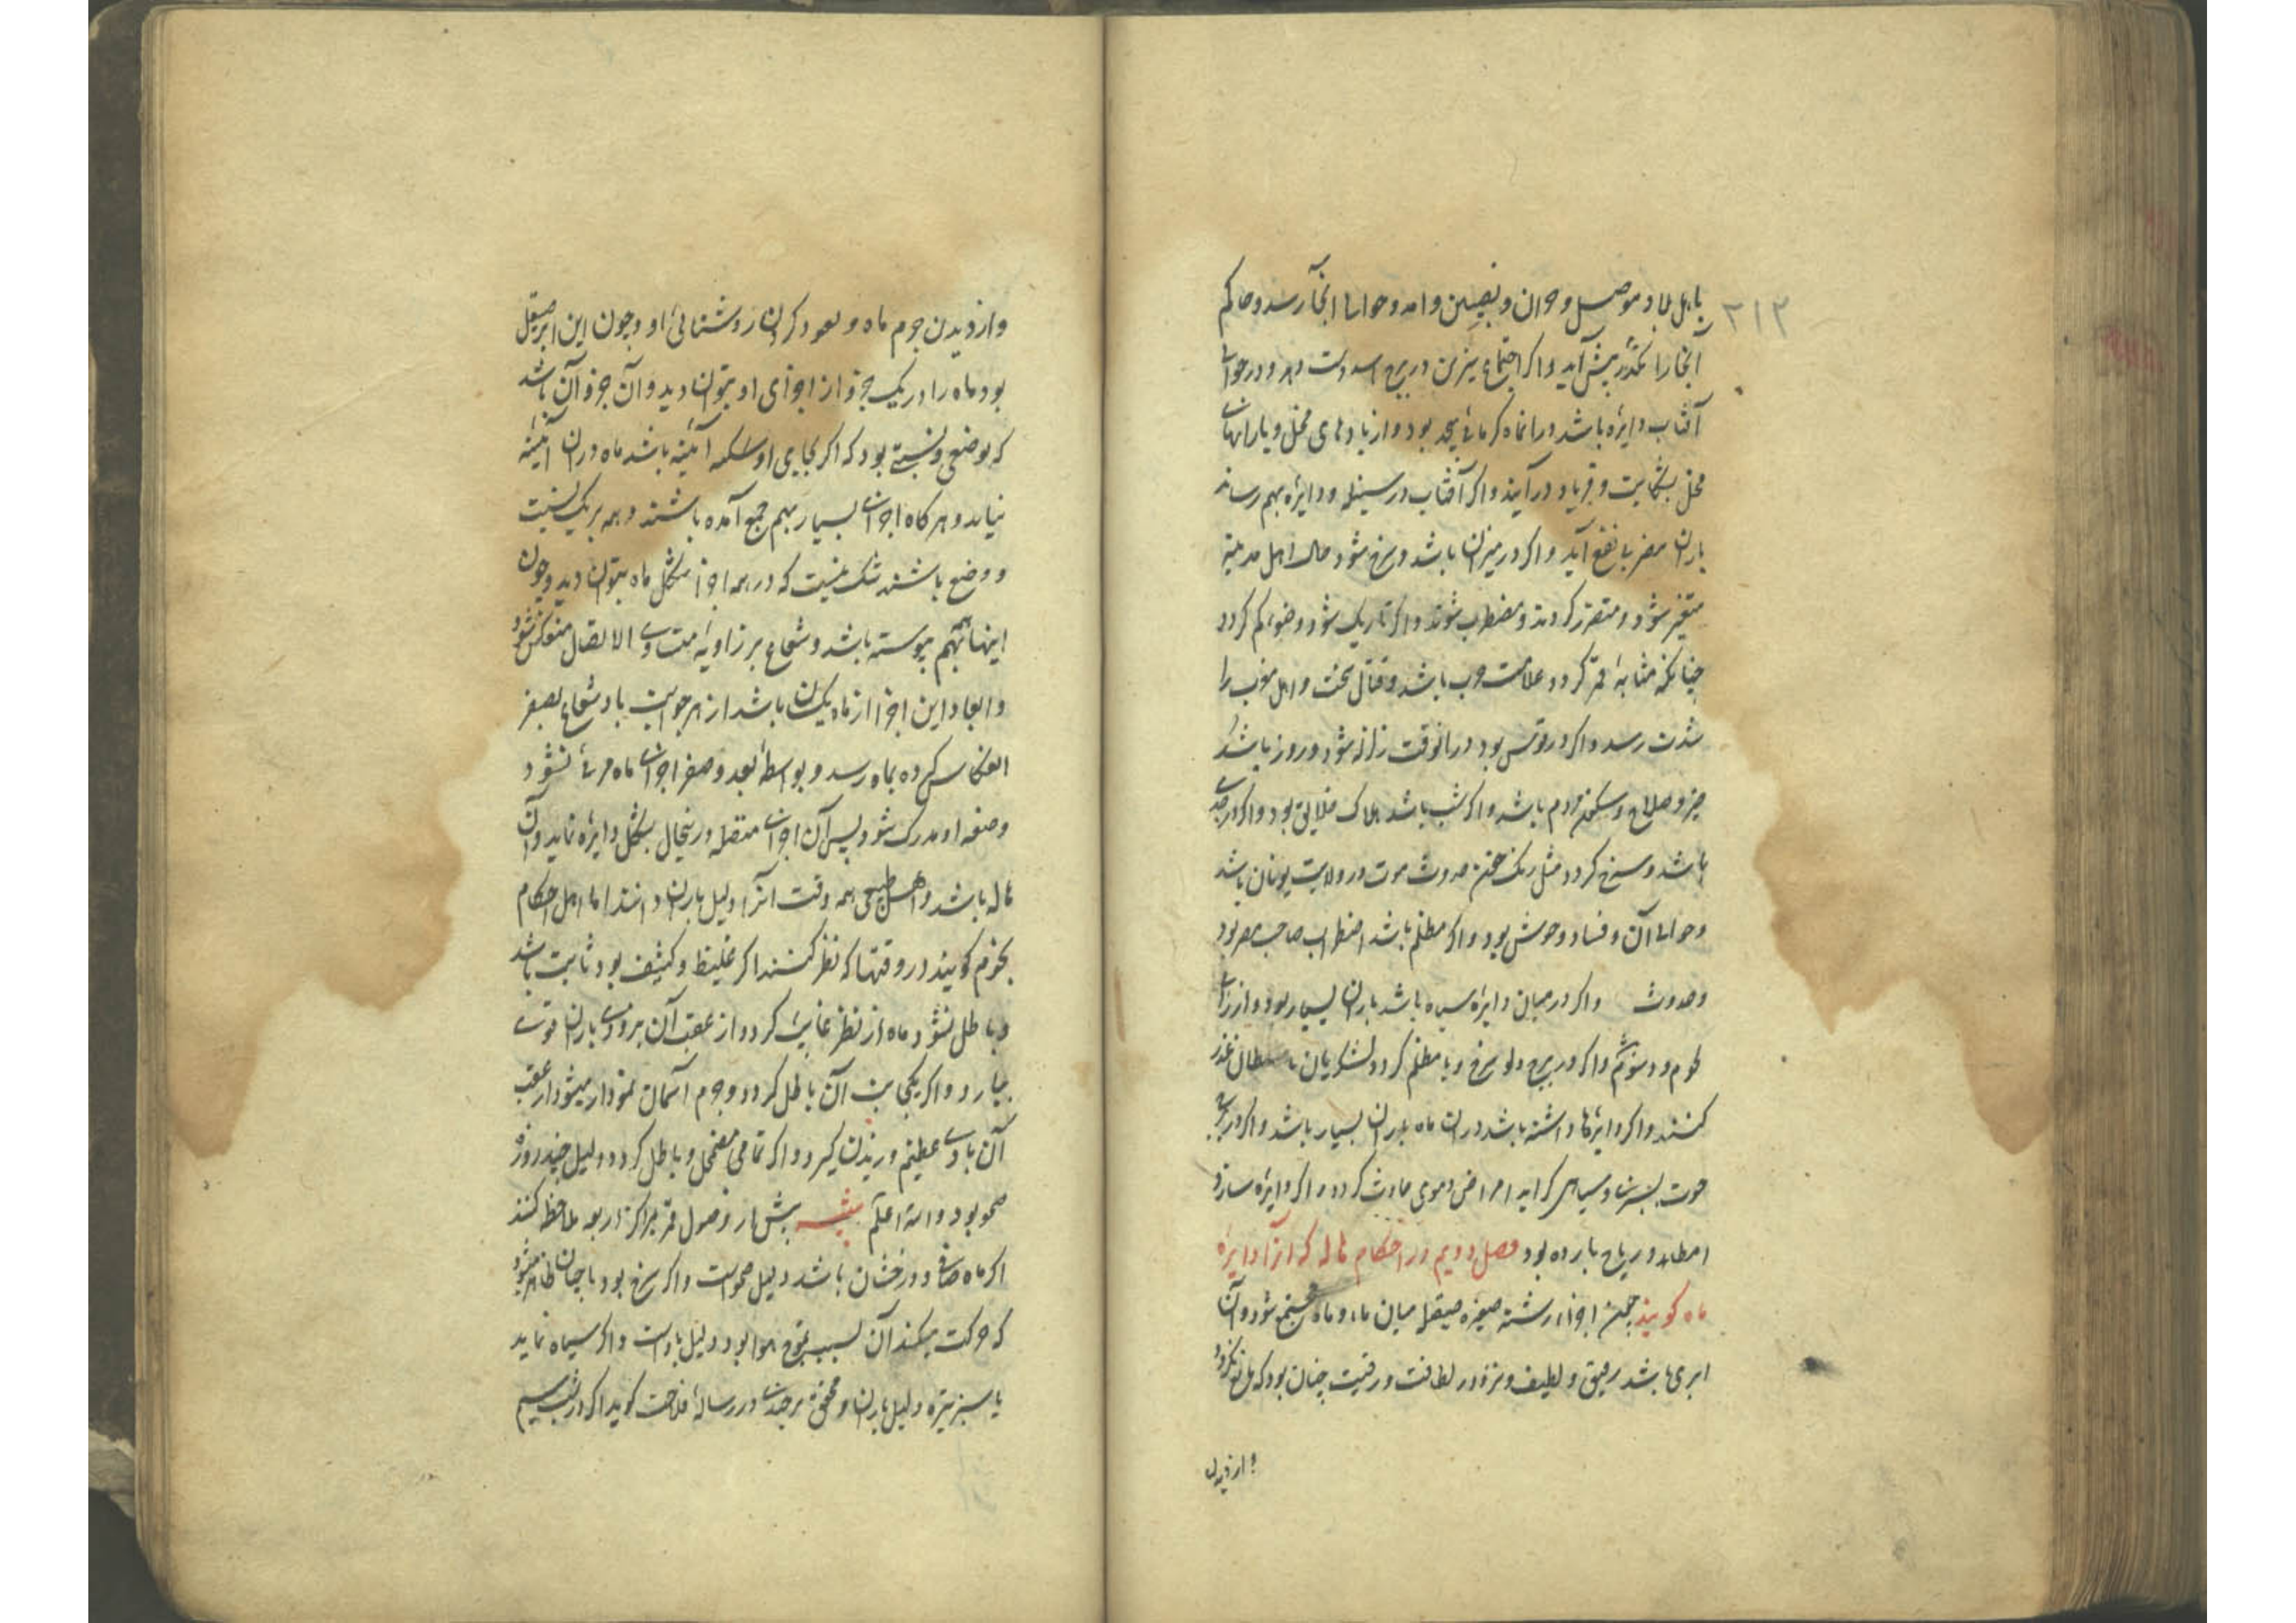 ۲۱۳
بابل بلاد موصل و حران و نصیبین و آمد و حوالی آنجا رسد و حاکم
آنجا را تکدر پیش آید و اگر اجتماع نیرین در برج اسد دست دهد و در حوالی
آفتاب دایره باشد در انماه گرمائی بیحد بود و از بادهای مخل و بارانهای
مخل بشکایت و فریاد در آیند و اگر آفتاب در سنبله و دایره بهم رساند
باران مضر یا نفع آید و اگر در میزان باشد و سرخ شود حال اهل مدینه
متغیر شود و متضرر گردند و مضطرب شوند و اگر تاریک شود و ضوء کم گردد
چنانکه مشابه قمر گردد علامت حرب باشد و قتال سخت و اهل مغرب را
شدت رسد و اگر در قوس بود در انوقت زلزله شود و روز باشد
خیر و صلاح و سکون مردم باشد و اگر شب باشد هلاک خلایق بود و اگر در جدی
باشد و سرخ گردد مثل رنگ خون حدوث موت در ولایت یونان باشد
و حوالی آن و فساد وحوش بود و اگر مظلم باشد اضطراب صاحب مصر بود
و حدوث و اگر در میان دایره سیاه باشد باران بسیار بود و ارزانی
لحوم و دسوم و اگر در برج دلو سرخ و یا مظلم گردد لشکریان با سلطان غدر
کنند و اگر دایرها داشته باشد دران ماه باران بسیار باشد و اگر در برج
حوت بسرخی و سیاهی گراید امراض دموی حادث گردد و اگر دایره سازد
امطار و ریاح بارده بود فصل دویم در احکام هاله که آنرا دایره
ماه گویند چون اجزاء رشته صغیره صیقلی میان ما و ماه مجتمع شود و آن
ابری باشد رقیق و لطیف و نزد در لطافت و رقت چنان بود که مانع نگردد
و از دیدن
و از دیدن جرم ماه و نعود کردن از روشنائی او و چون این ابر صیقل
بود ماه را در یک جزو از اجزای او بتوان دید و آن جزو آن باشد
که بوضعی و نسبتی بود که اگر بجای او آئینه باشد ماه دران آئینه
نیاید و هر گاه اجزای بسیار بهم جمع آمده باشند و همه بر یک نسبت
و وضع باشند شک نیست که در همه اجزا شکل ماه بتوان دید و چون
اینها بهم پیوسته باشد و شعاع بر زاویه متساوی الاتصال منعکس شود
و ابعاد این اجزا از ماه یکسان باشد از هر جوانب باد شعاع بصبغر
انعکاس کرده بماه رسد و بواسطه بعد و صغر اجزای ماه مرئی نشود
وضعه او مدرک شود پس آن اجزای متصله در خیال بشکل دایره نماید و آن
هاله باشد و اهل طبیعی همه وقت آنرا دلیل باران دانند اما اهل احکام
نجوم گویند در وقتها که نظر کنند اگر غلیظ و کثیف بود ثابت باشد
و باطل نشود و ماه از نظر غایب گردد و از عقب آن بزودی باران قوی
ببارد و اگر یکجانب آن باطل گردد و جرم آسمان نمودار میشود از عقب
آن بادی عظیم وزیدن گیرد و اگر تمامی مضمحل و باطل گردد دلیل چند روزه
صحو بود والله اعلم تنبیه پیش از فصول قمر مراکز اربعه ملاحظه کنند
اگر ماه صافی و درخشان باشد دلیل صحو است و اگر سرخ بود یا چنان ظاهر شود
که حرکت میکند آن بسبب تموج هوا بود و دلیل باد است و اگر سیاه نماید
یا سبز تیره دلیل باران و محقق برجندی در رساله فلاحت گوید اگر در شب سیم